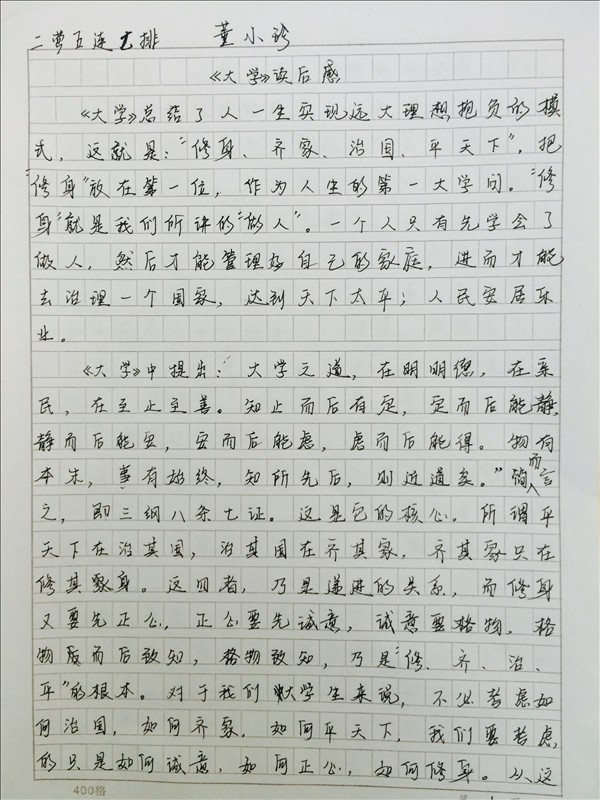 二营五连七排 董小珍
《大学》读后感
《大学》总结了人一生实现远大理想抱负的模
式，这就是："修身、齐家、治国、平天下"，把
"修身"放在第一位，作为人生的第一大学问。"修
身"就是我们所讲的"做人"。一个人只有先学会了
做人，然后才能管理好自己的家庭，进而才能
去治理一个国家，达到天下太平；人民安居乐
业。
《大学》中提出："大学之道，在明明德，在亲
民，在至止至善。知止而后有定，定而后能静，
静而后能安，安而后能虑，虑而后能得。物有
本末，事有始终，知所先后，则近道矣。"简而言
之，即三纲八条七证。这是它的核心。所谓平
天下在治其国，治其国在齐其家，齐其家只在
修其身。这四者，乃是递进的关系，而修身
又要先正心，正心要先诚意，诚意要格物，格
物而后致知，格物致知，乃是"修、齐、治、
平"的根本。对于我们大学生来说，不必考虑如
何治国，如何齐家，如何平天下，我们要考虑
的只是如何诚意，如何正心，如何修身。从这
400格